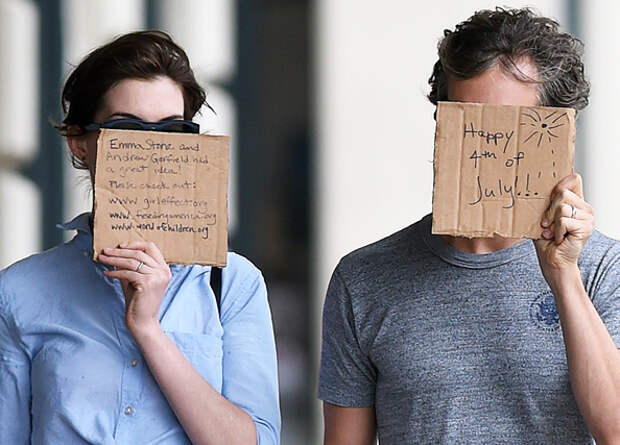 Emma Stone and
Andrew Garfield had
a great idea!
Please check out:
www.girleffect.org
www.feedingamerica.org
www.worldofchildren.org
Happy
4th of
July!!!